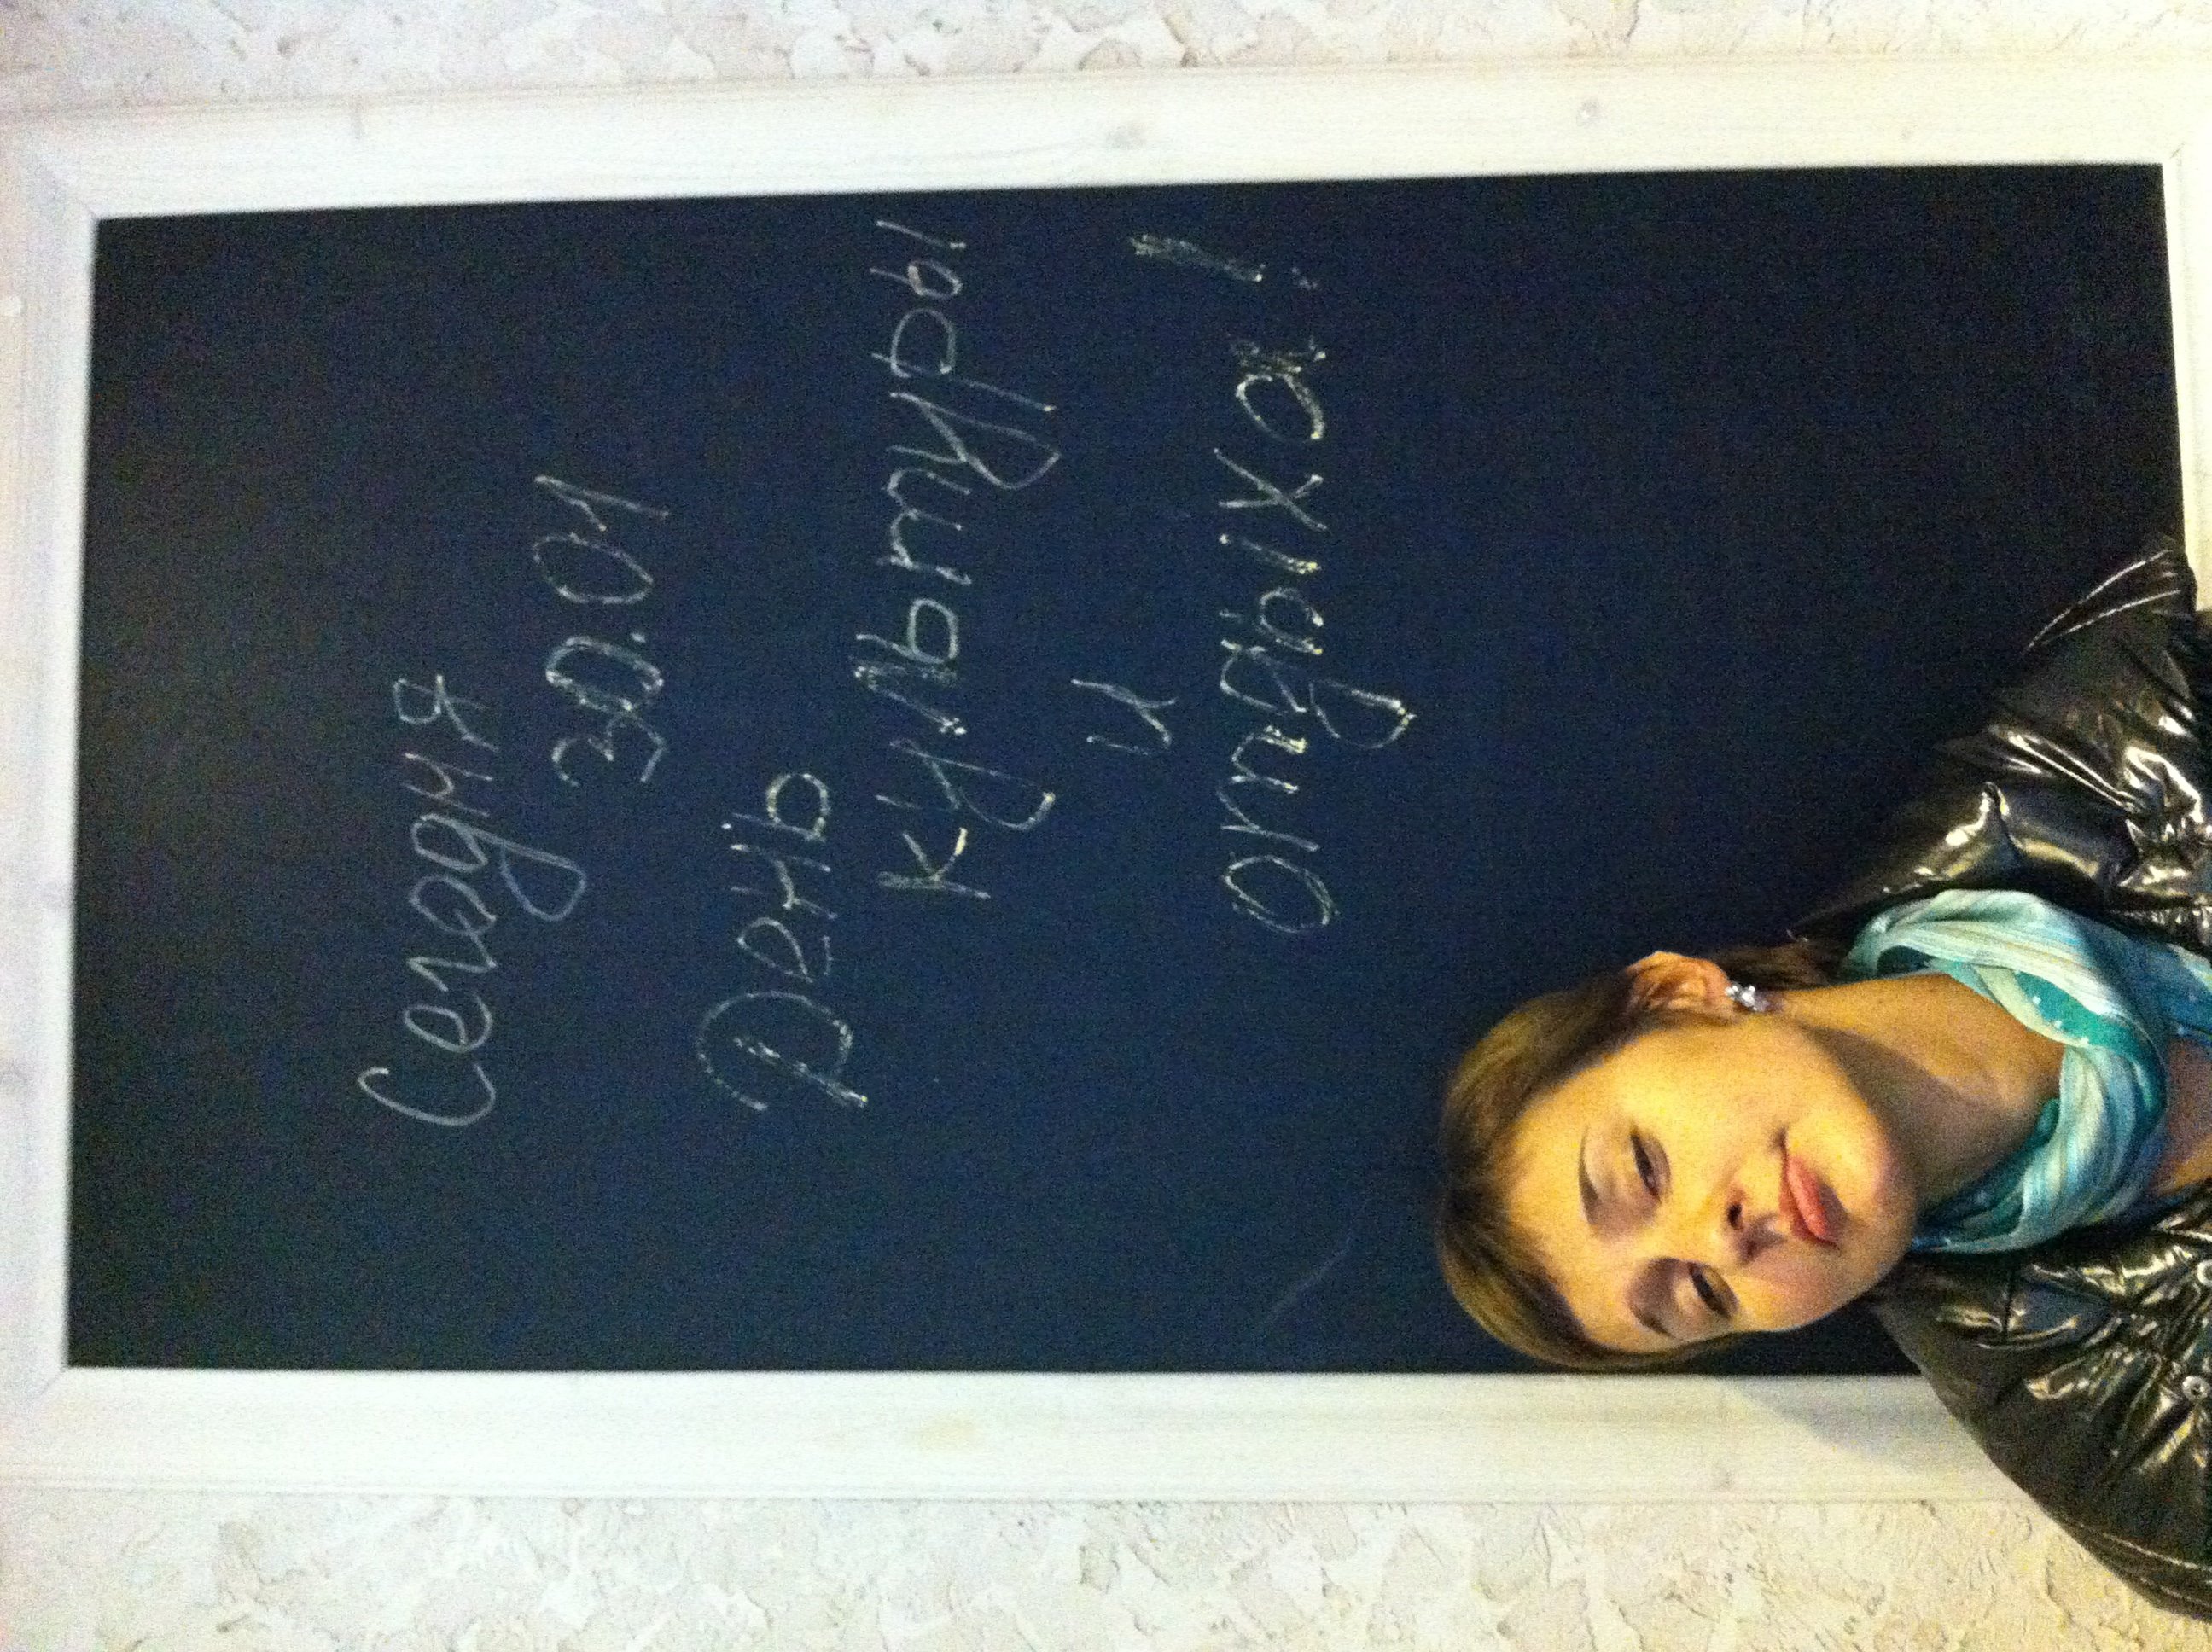 Сегодня
30.01
День
культуры
и
отдыха!